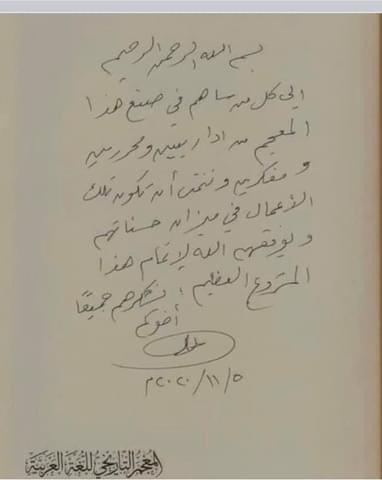 بسم الله الرحمن الرحيم
إلى كل من ساهم في صنع هذا
المعجم من اداريين ومحررين
ومفكرين ونتمنى أن تكون تلك
الأعمال في ميزان حسناتهم
ويوفقهم الله لاتمام هذا
المشروع العظيم، نشكرهم جميعًا
أخوكم
٢٠٢٠/١١/٥م
المعجم التاريخي للغة العربية